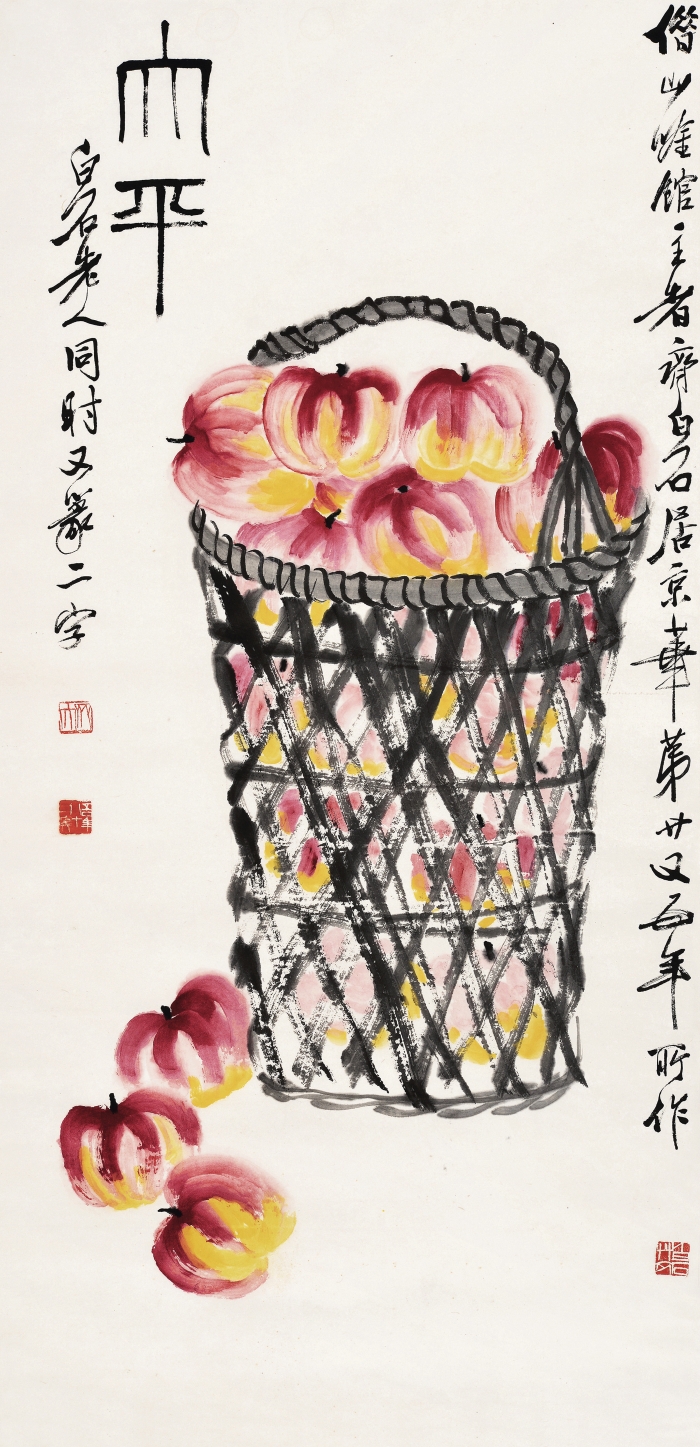 借山唫館主者齊白石居京華苐廿又五年所作
大平
白石老人同时又篆二字